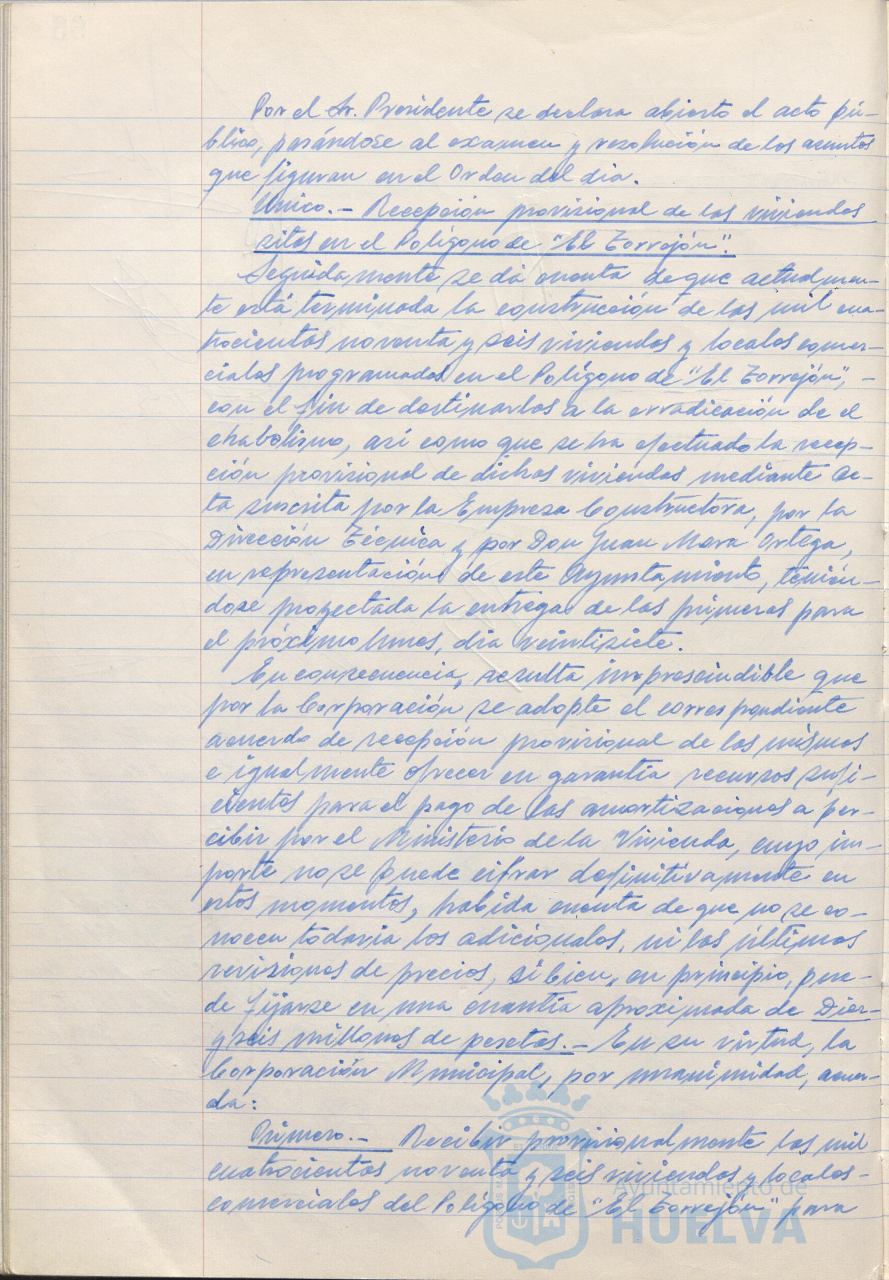 Por el Sr. Presidente se declara abierto el acto pú-
blico, pasándose al examen y resolución de los asuntos
que figuran en el Orden del día.
Unico.- Recepción provisional de las viviendas
sitas en el Polígono de "El Torrejón".
Seguidamente se dá cuenta de que actualmen-
te está terminada la construcción de las mil cua-
trocientas noventa y seis viviendas y locales comer-
ciales programados en el Polígono de "El Torrejón", -
con el fin de destinarlos a la erradicación de el
chabolismo, así como que se ha efectuado la recep-
ción provisional de dichas viviendas mediante Ac-
ta suscrita por la Empresa Constructora, por la
Dirección Técnica y por Don Juan Mora Ortega,
en representación de este Ayuntamiento, tenién-
dose proyectada la entrega de las primeras para
el próximo lunes, día veintisiete.
En consecuencia, resulta imprescindible que
por la Corporación se adopte el correspondiente
acuerdo de recepción provisional de las mismas
e igualmente ofrecer en garantía recursos sufi-
cientes para el pago de las amortizaciones a per-
cibir por el Ministerio de la Vivienda, cuyo im-
porte no se puede cifrar definitivamente en
estos momentos, habida cuenta de que no se co-
nocen todavía los adicionales, ni las últimas
revisiones de precios, si bien, en principio, pue-
de fijarse en una cuantía aproximada de Diez-
y seis millones de pesetas.- En su virtud, la
Corporación Municipal, por unanimidad, acuer-
da:
Primero.- Recibir provisionalmente las mil
cuatrocientas noventa y seis viviendas y locales-
comerciales del Polígono de "El Torrejón" para
Ayuntamiento de
HUELVA